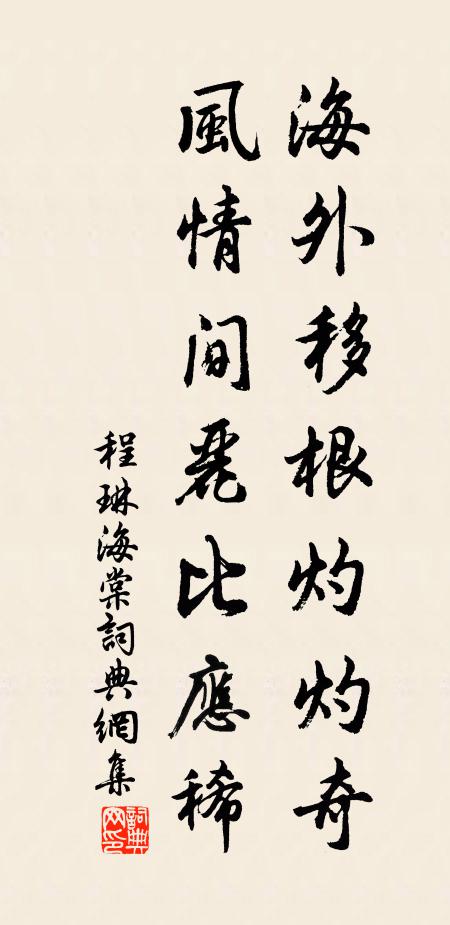 海外移根灼灼奇
風情間麗比應稀
程琳海棠詞典網集
詞典網印